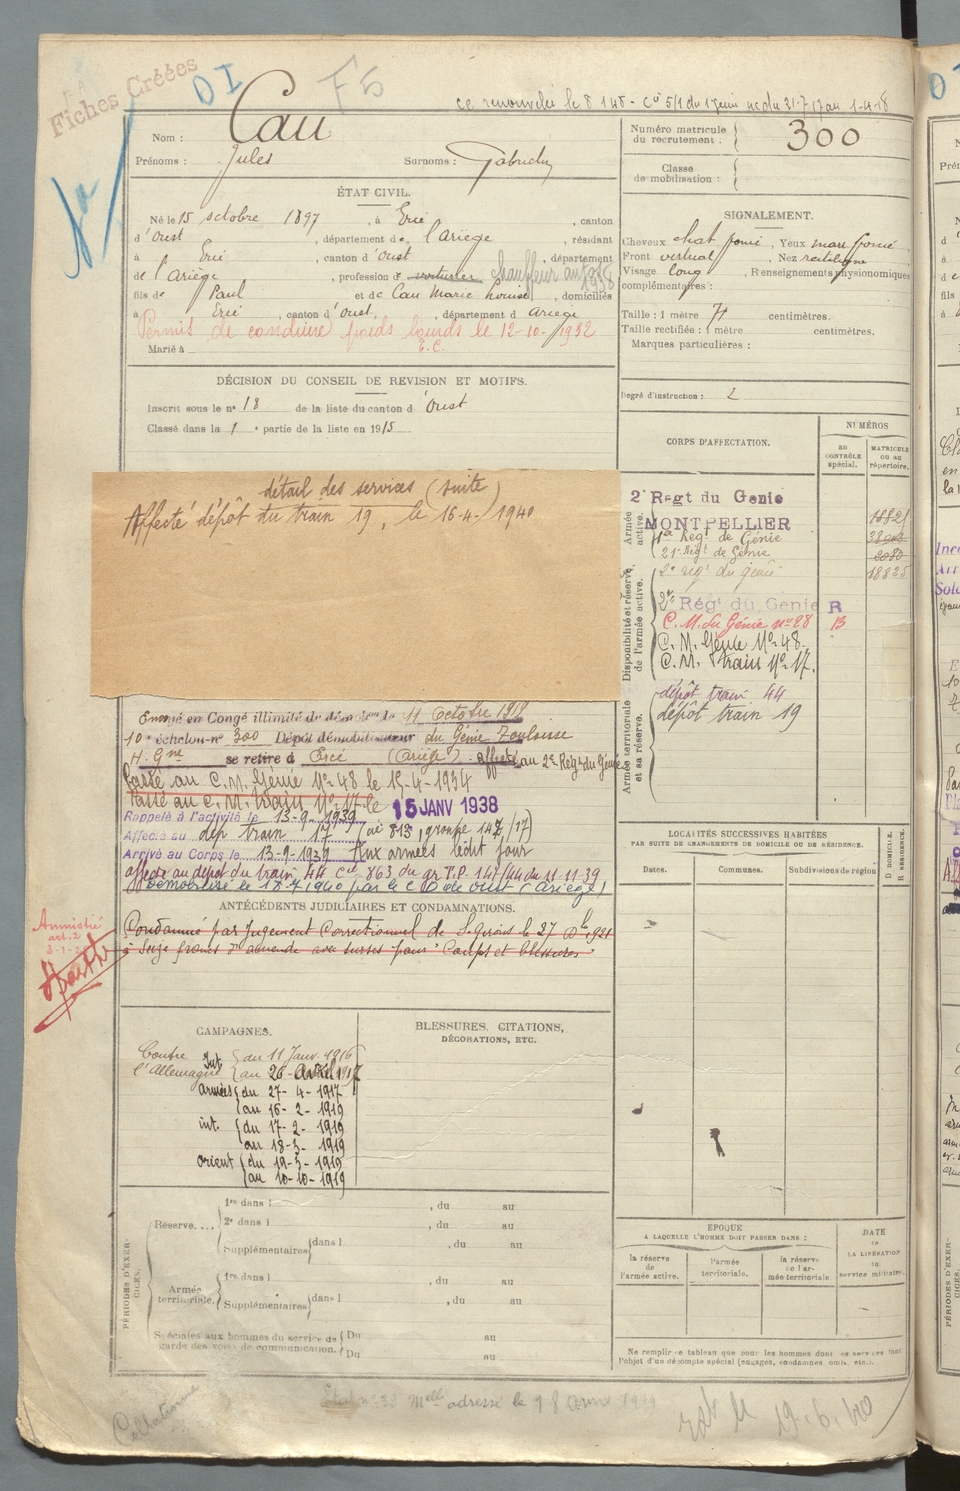 Fiches Créées
DI
F5
Nom : Cau
Prénoms : Jules Surnoms :
Numéro matricule du recrutement : 300
Classe de mobilisation :
ÉTAT CIVIL.
Né le 15 octobre 1897, à Ercé, canton
d'Oust, département de l'Ariège, résidant
à Ercé, canton d'Oust, département
de l'Ariège, profession de voiturier chauffeur auto 1938
fils de Paul et de Cau Marie Louise, domiciliés
à Ercé, canton d'Oust, département d Ariège
Permis de conduire poids lourds le 12-10-1932
E.C.
Marié à
SIGNALEMENT.
Cheveux chat foncé, Yeux marr foncé,
Front vertical, Nez rectiligne
Visage long, Renseignements physionomiques
complémentaires :
Taille : 1 mètre 71 centimètres.
Taille rectifiée : 1 mètre centimètres.
Marques particulières :
Degré d'instruction : 2
DÉCISION DU CONSEIL DE REVISION ET MOTIFS.
Inscrit sous le n° 18 de la liste du canton d'Oust
Classé dans la 1e partie de la liste en 1915
détail des services (suite)
Affecté dépôt du train 19, le 16-4-1940
CORPS D'AFFECTATION.
NUMÉROS
au CONTRÔLE spécial.
MATRICULE ou au répertoire.
Armée active.
2e Regt du Genie
MONTPELLIER
1er Régt de Génie
21e Régt de Génie
2e régt du génie
18825
Disponibilité et réserve de l'armée active.
2e Régt du Genie R
C. M. du Génie n° 28 B
C. M. Génie N° 48.
C. M. train N° 17.
Armée territoriale et sa réserve.
dépôt train 44
dépôt train 19
Envoyé en Congé illimité de démob le 11 Octobre 1919
10e échelon n° 300 Dépôt démobilisateur du Génie Toulouse
se retire à Ercé (Ariège) affecté au 2e Reg du Génie
Passé au C.M. Génie N° 48 le 15-4-1934
Passé au C.M. train N° 17 le 15 JANV 1938
Rappelé à l'activité le 13-9-1939
Affecté au dép train 17
Arrivé au Corps le 13-9-1939 Aux armées ledit jour
affecté au dépôt du train 44 Cie 863 du gr T.P. 147/44 du 11-11-39
Démobilisé le 18-7-1940 par le C D de Oust (Ariège)
ANTÉCÉDENTS JUDICIAIRES ET CONDAMNATIONS.
Condamné par Jugement Correctionnel de St Girons le 27 Dbe 1921
à Seize francs d'amende avec sursis pour "Coups et blessures"
Amnistié
art. 2
LOCALITÉS SUCCESSIVES HABITÉES
PAR SUITE DE CHANGEMENTS DE DOMICILE OU DE RÉSIDENCE.
Dates. Communes. Subdivisions de région
D DOMICILE.
R RÉSIDENCE.
CAMPAGNES.
Contre l'Allemagne
Int. du 11 Janv. 1916
au 26 Avril 1917
armées du 27-4-1917
au 16-2-1919
int. du 17-2-1919
au 18-3-1919
orient du 19-3-1919
au 10-10-1919
BLESSURES, CITATIONS,
DÉCORATIONS, ETC.
PÉRIODES D'EXERCICES.
Réserve....
1re dans l , du au
2e dans l , du au
Supplémentaires dans l , du au
Armée territoriale.
1re dans l , du au
Supplémentaires dans l , du au
Spéciales aux hommes du service de garde des voies de communication.
Du au
Du au
EPOQUE
A LAQUELLE L'HOMME DOIT PASSER DANS :
la réserve de l'armée active.
l'armée territoriale.
la réserve de l'armée territoriale
DATE DE LA LIBÉRATION du service militaire.
Ne remplir ce tableau que pour les hommes dont les services font
l'objet d'un décompte spécial (engagés, condamnés, omis, etc.).
adressé le 18
19.6.40